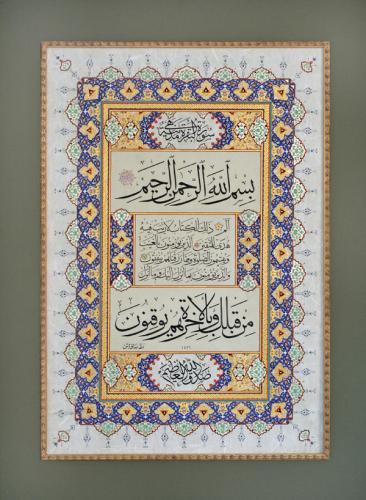 سورة البقرة
بسم الله الرحمن الرحيم
الم ذلك الكتاب لا ريب فيه
هدى للمتقين الذين يؤمنون بالغيب
ويقيمون الصلوة ومما رزقناهم ينفقون
والذين يؤمنون بما أنزل إليك وما أنزل
من قبلك وبالآخرة هم يوقنون
صدق الله العظيم